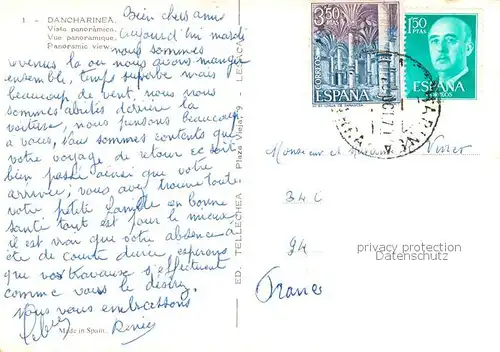 1 - DANCHARINEA.
Vista panorámica.
Vue panoramique.
Panoramic view.
Bien chers amis
aujourd'hui mardi
nous sommes
venus là où nous avons mangé
ensemble, temps superbe mais
beaucoup de vent, nous nous
sommes abrités derrière la
voiture, nous pensons beaucoup
à vous, suis sommes contents que
votre voyage de retour se soit
bien passé ainsi que votre
arrivée; vous avez trouvé toute
votre petite famille en bonne
santé tant est pour le mieux
il est vrai que votre absence a
été de courte durée espérons
que vos travaux s'effectuent
comme vous le désirez.
Nous vous embrassons
Denise
Made in Spain
ED. TELLECHEA - Plaza Vieja, 9 - LE
3,50
PTAS
CORREOS
ESPAÑA
1,50
PTAS
ESPAÑA
CORREOS
Monsieur et
94
France
privacy protection
Datenschutz